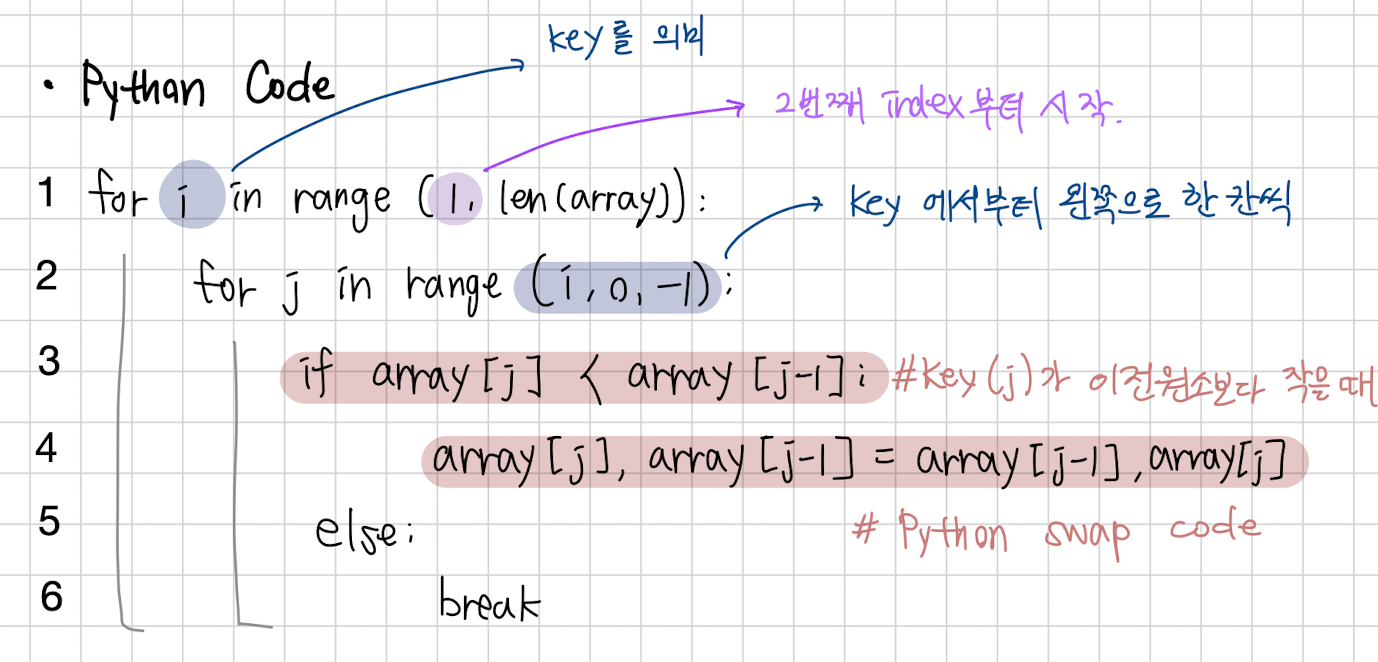 key를 의미
• Python Code
2번째 index부터 시작.
1 for i in range (1, len(array)):
key 에서부터 왼쪽으로 한 칸씩
2 for j in range (i, 0, -1):
3 if array [j] < array [j-1]: #Key(j)가 이전원소보다 작을 때
4 array [j], array [j-1] = array [j-1], array[j]
5 else: # Python swap code
6 break